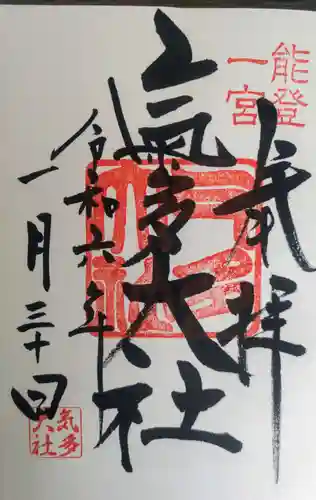 能登
一宮
奉拝
氣多大社
令和六年
一月三十日
気多
大社